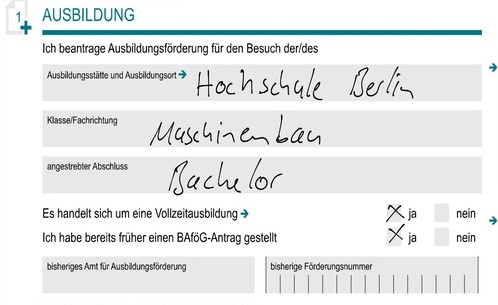 1 AUSBILDUNG
Ich beantrage Ausbildungsförderung für den Besuch der/des
Ausbildungsstätte und Ausbildungsort Hochschule Berlin
Klasse/Fachrichtung Maschinenbau
angestrebter Abschluss Bachelor
Es handelt sich um eine Vollzeitausbildung ja nein
Ich habe bereits früher einen BAföG-Antrag gestellt ja nein
bisheriges Amt für Ausbildungsförderung bisherige Förderungsnummer